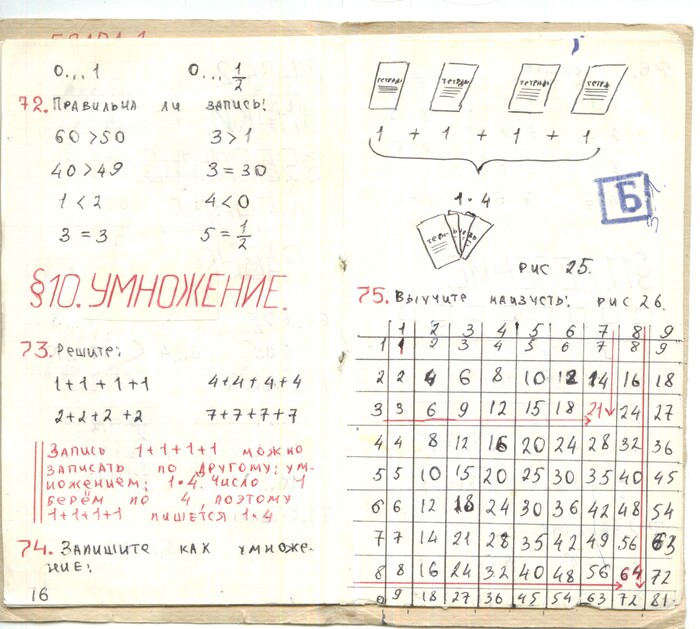 0...1 0...1/2
72. Правильна ли запись!
60>50 3>1
40>49 3=30
1<2 4<0
3=3 5=1/2
§10. УМНОЖЕНИЕ.
73. Решите:
1+1+1+1 4+4+4+4
2+2+2+2 7+7+7+7
Запись 1+1+1+1 можно
записать по другому: ум-
ножением: 1·4. Число 1
берём по 4, поэтому
1+1+1+1 пишется 1·4
74. Запишите как умноже-
ние:
16
тетрадь тетрадь тетрадь тетрадь
1 + 1 + 1 + 1
1·4
Б
рис 25.
75. Выучите наизусть: рис 26.
1 2 3 4 5 6 7 8 9
1 1 2 3 4 5 6 7 8 9
2 2 4 6 8 10 12 14 16 18
3 3 6 9 12 15 18 21 24 27
4 4 8 12 16 20 24 28 32 36
5 5 10 15 20 25 30 35 40 45
6 6 12 18 24 30 36 42 48 54
7 7 14 21 28 35 42 49 56 63
8 8 16 24 32 40 48 56 64 72
9 9 18 27 36 45 54 63 72 81